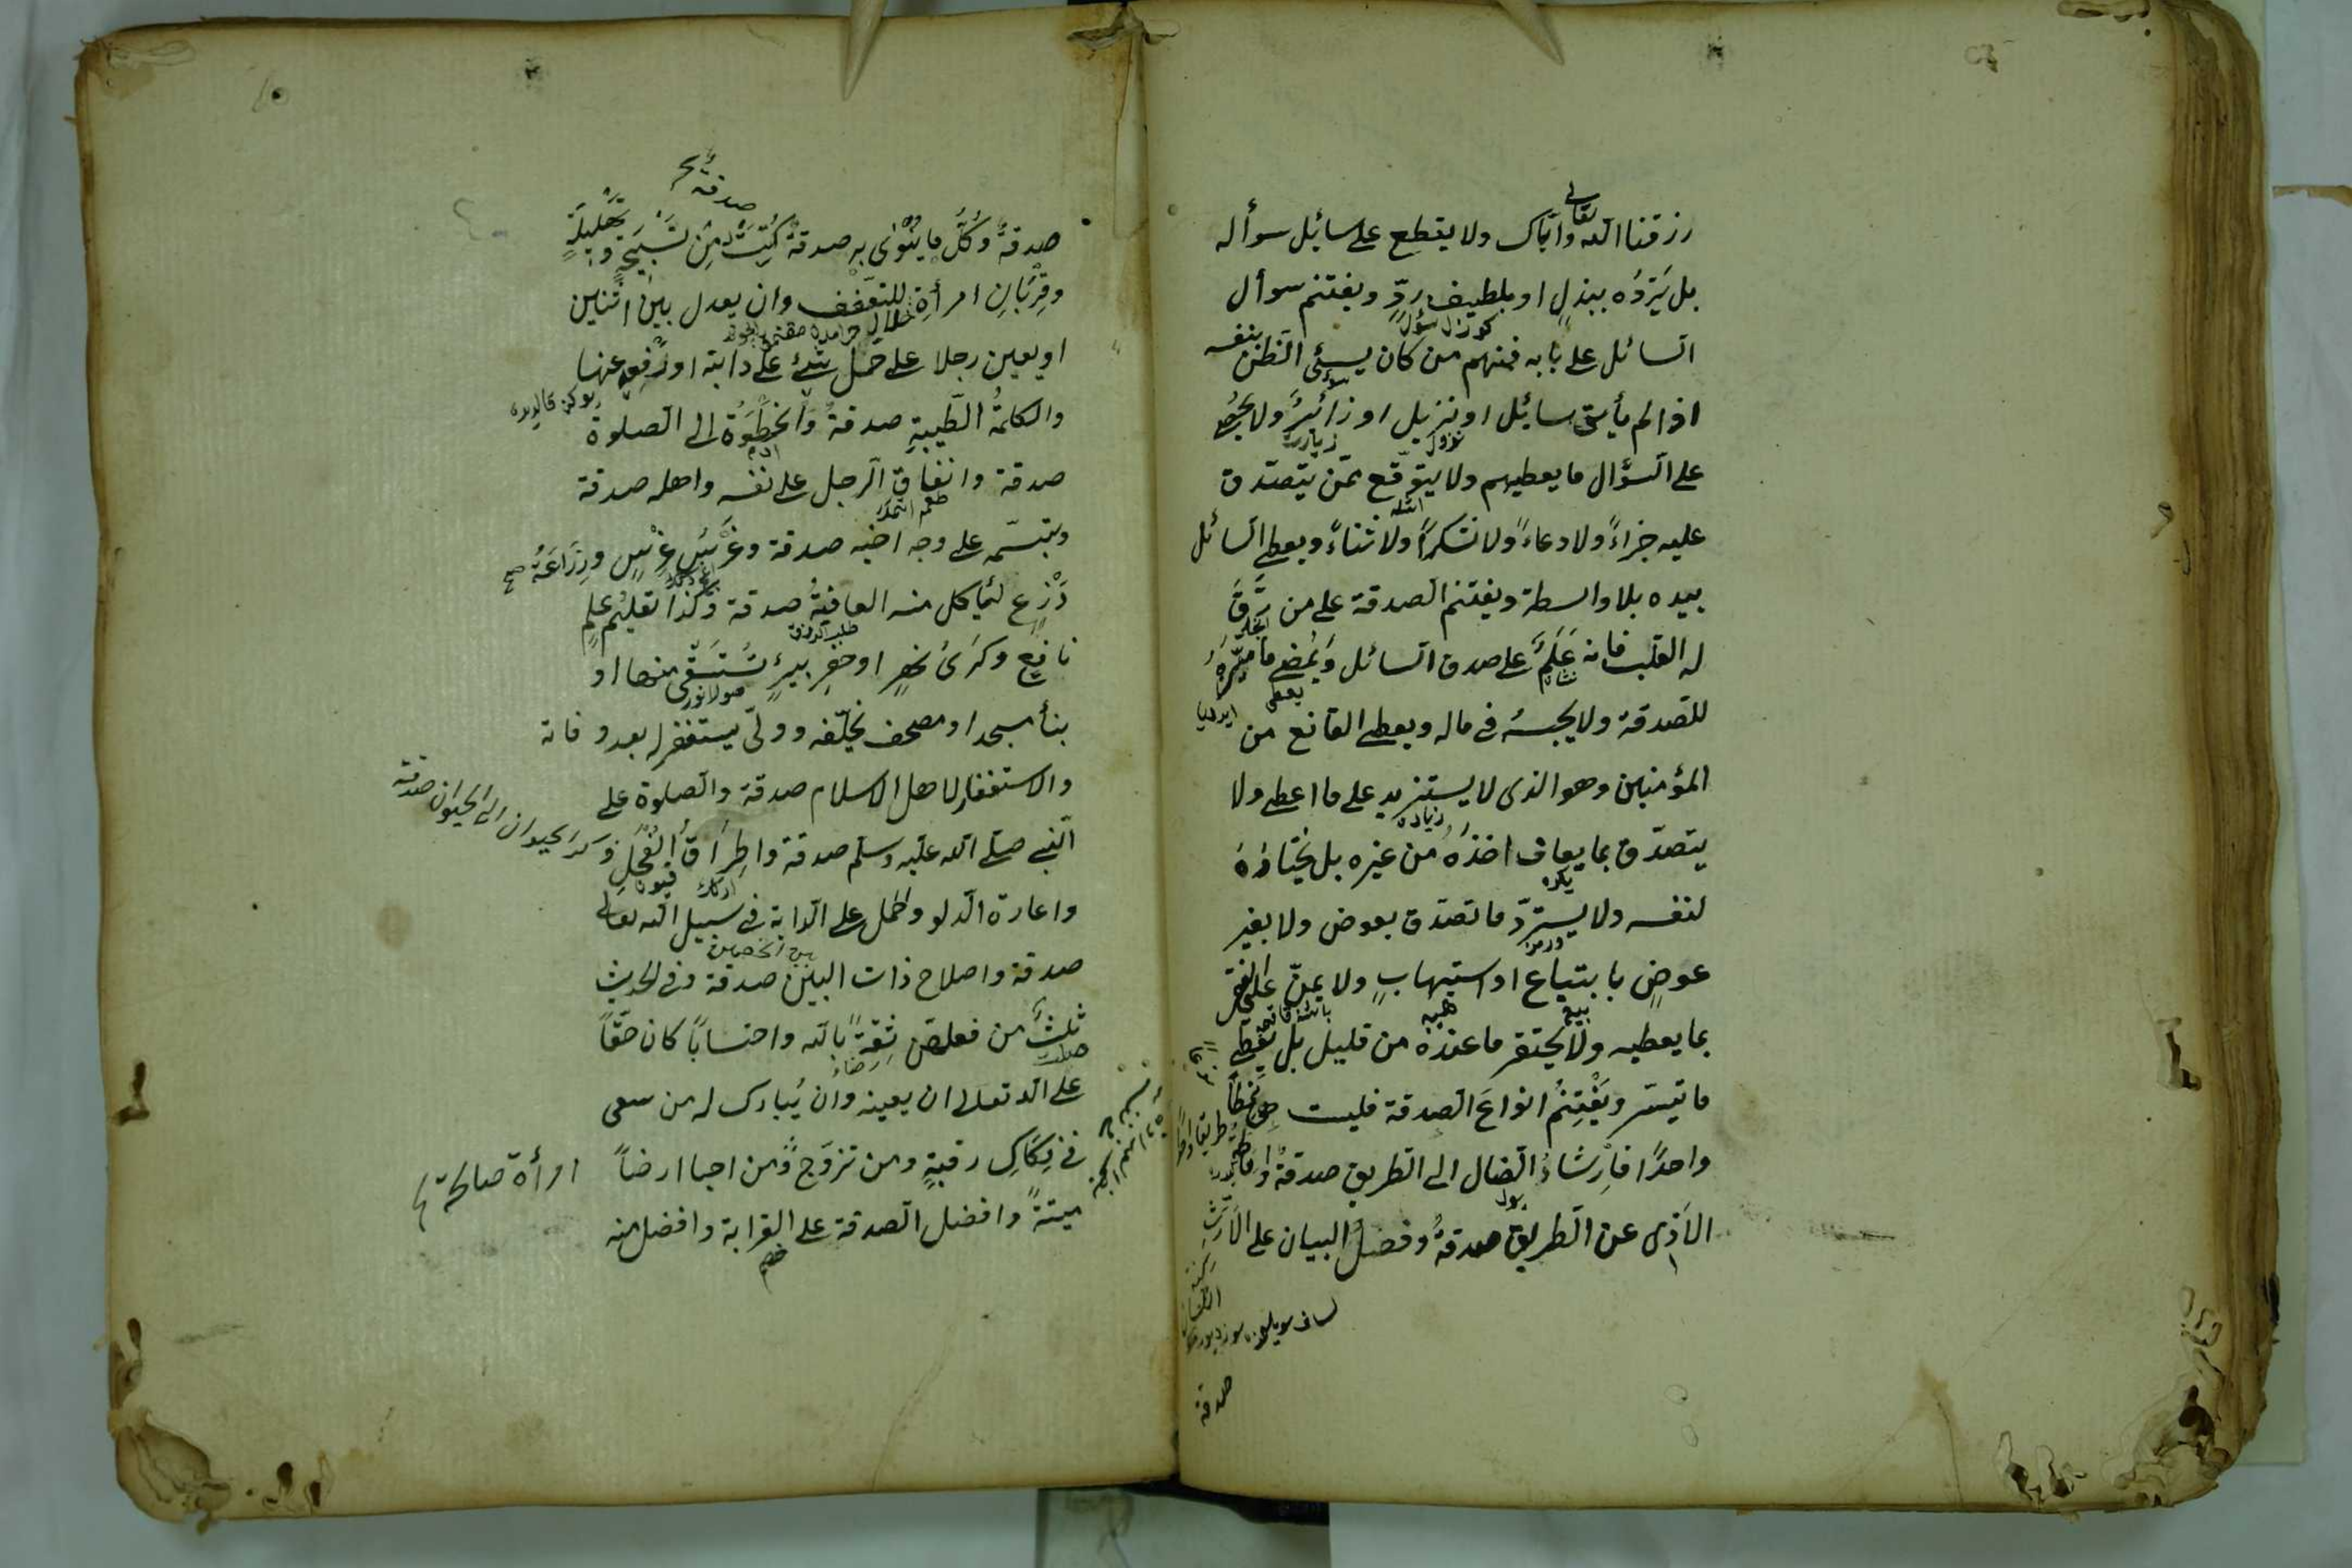 رزقنا الله تعالى واياك ولا يقطع على سائل سوأله
بل يردّه ببذلٍ او بلطيف ردّ ويغتنم سوأل
السائل على بابه فمنهم من كان يسيئ الظن بنفسه
اذا لم يأته سائل او نزيل او زائرٌ ولا يحصى
على السؤال ما يعطيهم ولا يتوقع ممّن يتصدّق
عليه جزاءً ولا دعاءً ولا شكراً ولا ثناءً ويعطى السائل
بيده بلا واسطة ويغتنم الصدقة على من رقّ
له القلب فانه عَلَمٌ على صدق السائل ويمضى ما ميّزه
للصدقة ولا يحبسه فى ماله ويعطى القانع من
المؤمنين وهو الذى لا يستزيد على ما اعطى ولا
يتصدّق بما يعاف اخذه من غيره بل يختاره
لنفسه ولا يستردّ ما تصدّق بعوض ولا بغير
عوضٍ بابتياع او استيهابٍ ولا يمنّ على الفقير
بما يعطيه ولا يحتقر ما عنده من قليل بل يعطى
ما تيسّر ويغتنم انواع الصدقة فليست
واحداً فارشادُ الضال الى الطريق صدقةٌ واماطة
الاذى عن الطريق صدقةٌ وفضلُ البيان على الارتّ
صدقة
صدقةٌ وكلّ ما ينوى به صدقةٌ كتبت من تسبيحةٍ وتهليلةٍ
صدقة
وقربان امرأة للتعفف وان يعدل بين اثنين
او يعين رجلا على حمل شئ على دابة او رفع عنها
والكلمة الطيبة صدقة والخطوة الى الصلوة
صدقة وانفاق الرجل على نفسه واهله صدقة
وتبسّمه على وجه اخيه صدقة وغرسُ غرسٍ وزراعةُ صح
زرعٍ لياكل منه العافية صدقة وكذا تعليم علمٍ
نافع وكرى نهرٍ او حفر بيرٍ تُستقى منها او
بنأ مسجد او مصحف يخلّفه وولّى يستغفر له بعد وفاته
والاستغفار لاهل الاسلام صدقة والصلوة على
النبى صلى الله عليه وسلم صدقة واطراق الفحل
واعارة الدلو والحمل على الدابة فى سبيل الله تعالى
بين الخصمين
صدقة واصلاح ذات البين صدقة وفى الحديث
ثلثٌ من فعلهنّ ثقةً بالله واحتساباً كان حقّاً
على الله تعالى ان يعينه وان يُبارك له من سعى
فى فكاك رقبةٍ ومن تزوّج ومن احيا ارضاً
امرأة صالحة
ميتةً وافضل الصدقة على القرابة وافضل منه